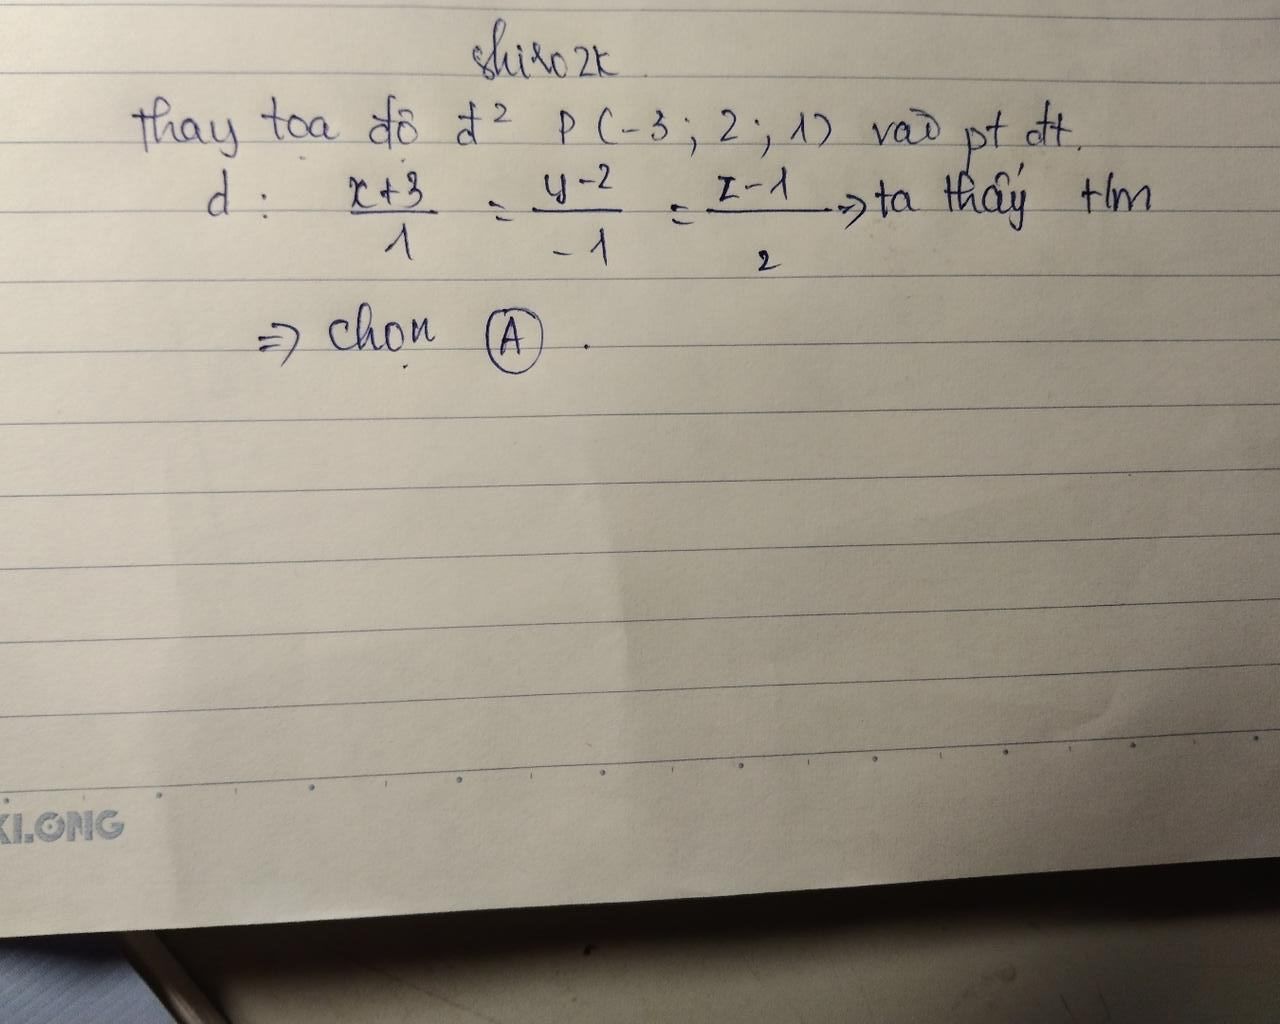 shiro2k
thay tọa độ đ² P (-3; 2; 1) vào pt đt.
d: x+3/1 = y-2/-1 = z-1/2 => ta thấy t/m
=> chọn A.
KLONG